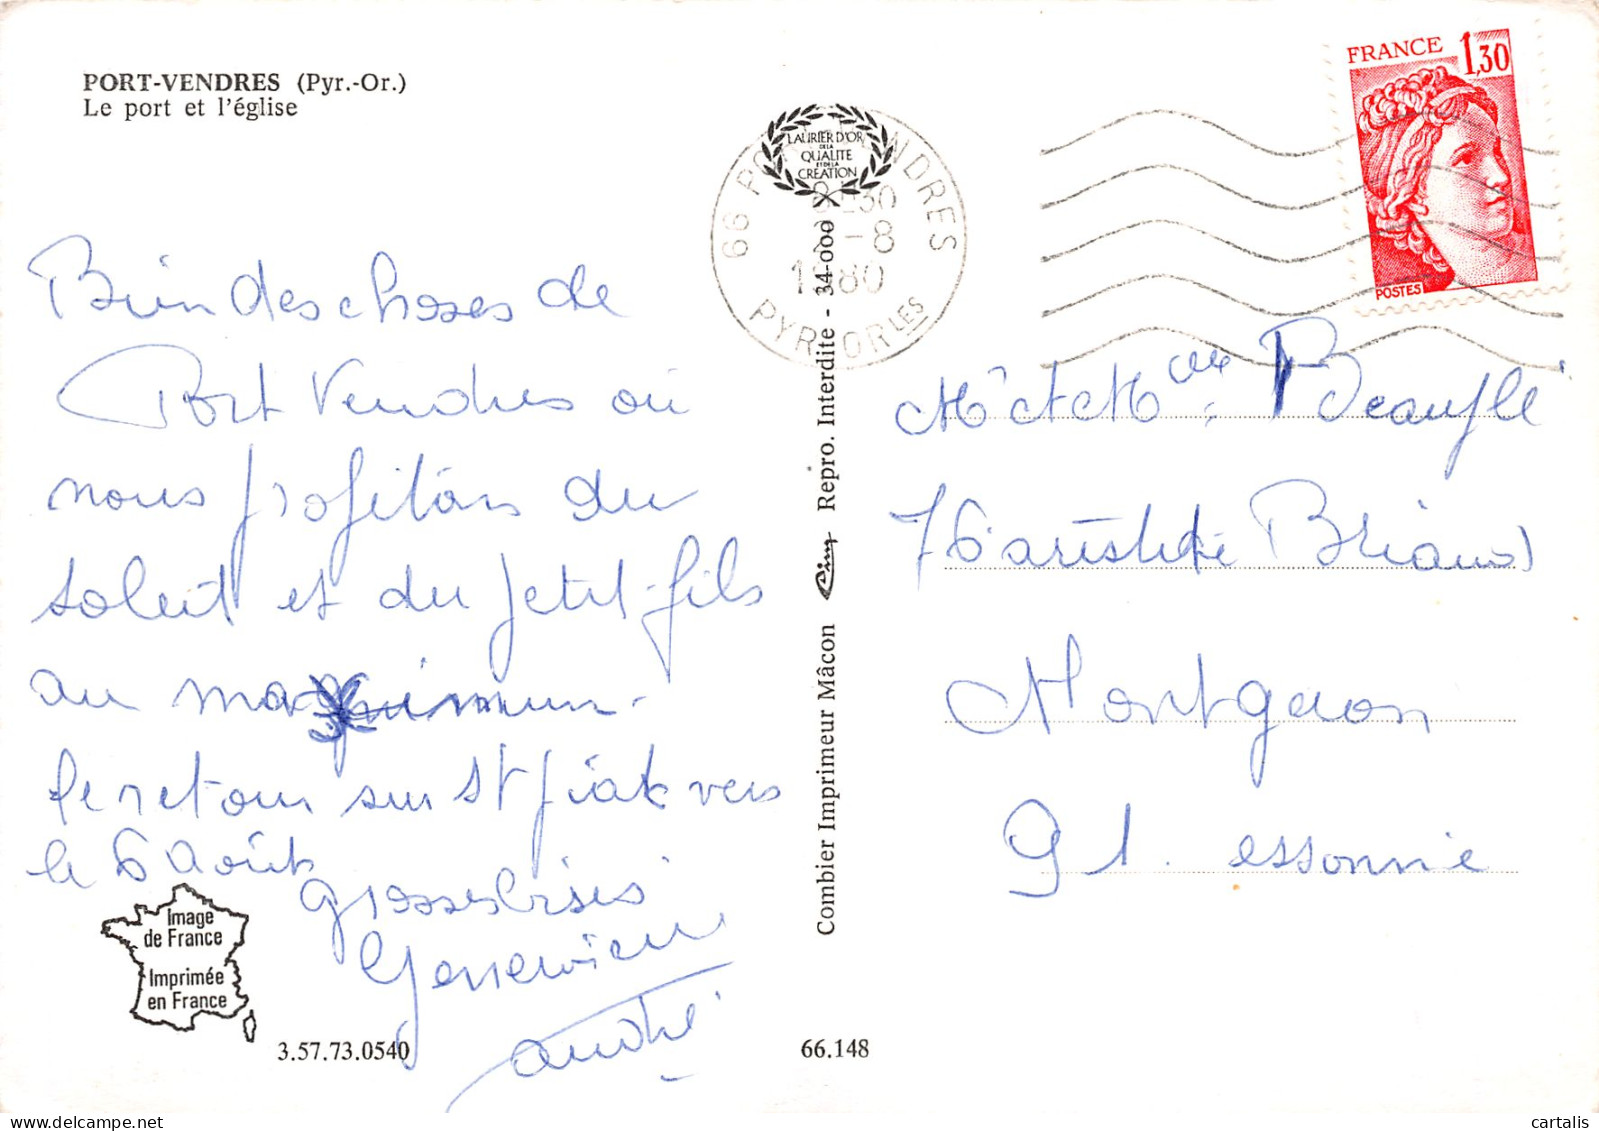 PORT-VENDRES (Pyr.-Or.)
Le port et l'église
Bien des choses de
Port Vendres où
nous profitons du
soleil et du petit-fils
au maximum.
le retour sur St vers
le 6 Août
Grosses bises
Genevieve
André
Image
de France
Imprimée
en France
3.57.73.0540
66.148
LAURIER D'OR
DE LA
QUALITE
ET DE LA
CREATION
Combier Imprimeur Mâcon Cim Repro. Interdite - 34-000
66 PORT-VENDRES
30
-8
1980
PYR. ORLES
FRANCE 1,30
POSTES
Mr et Mme
76 aristide Briand
Montgeron
91. essonne
cartalis